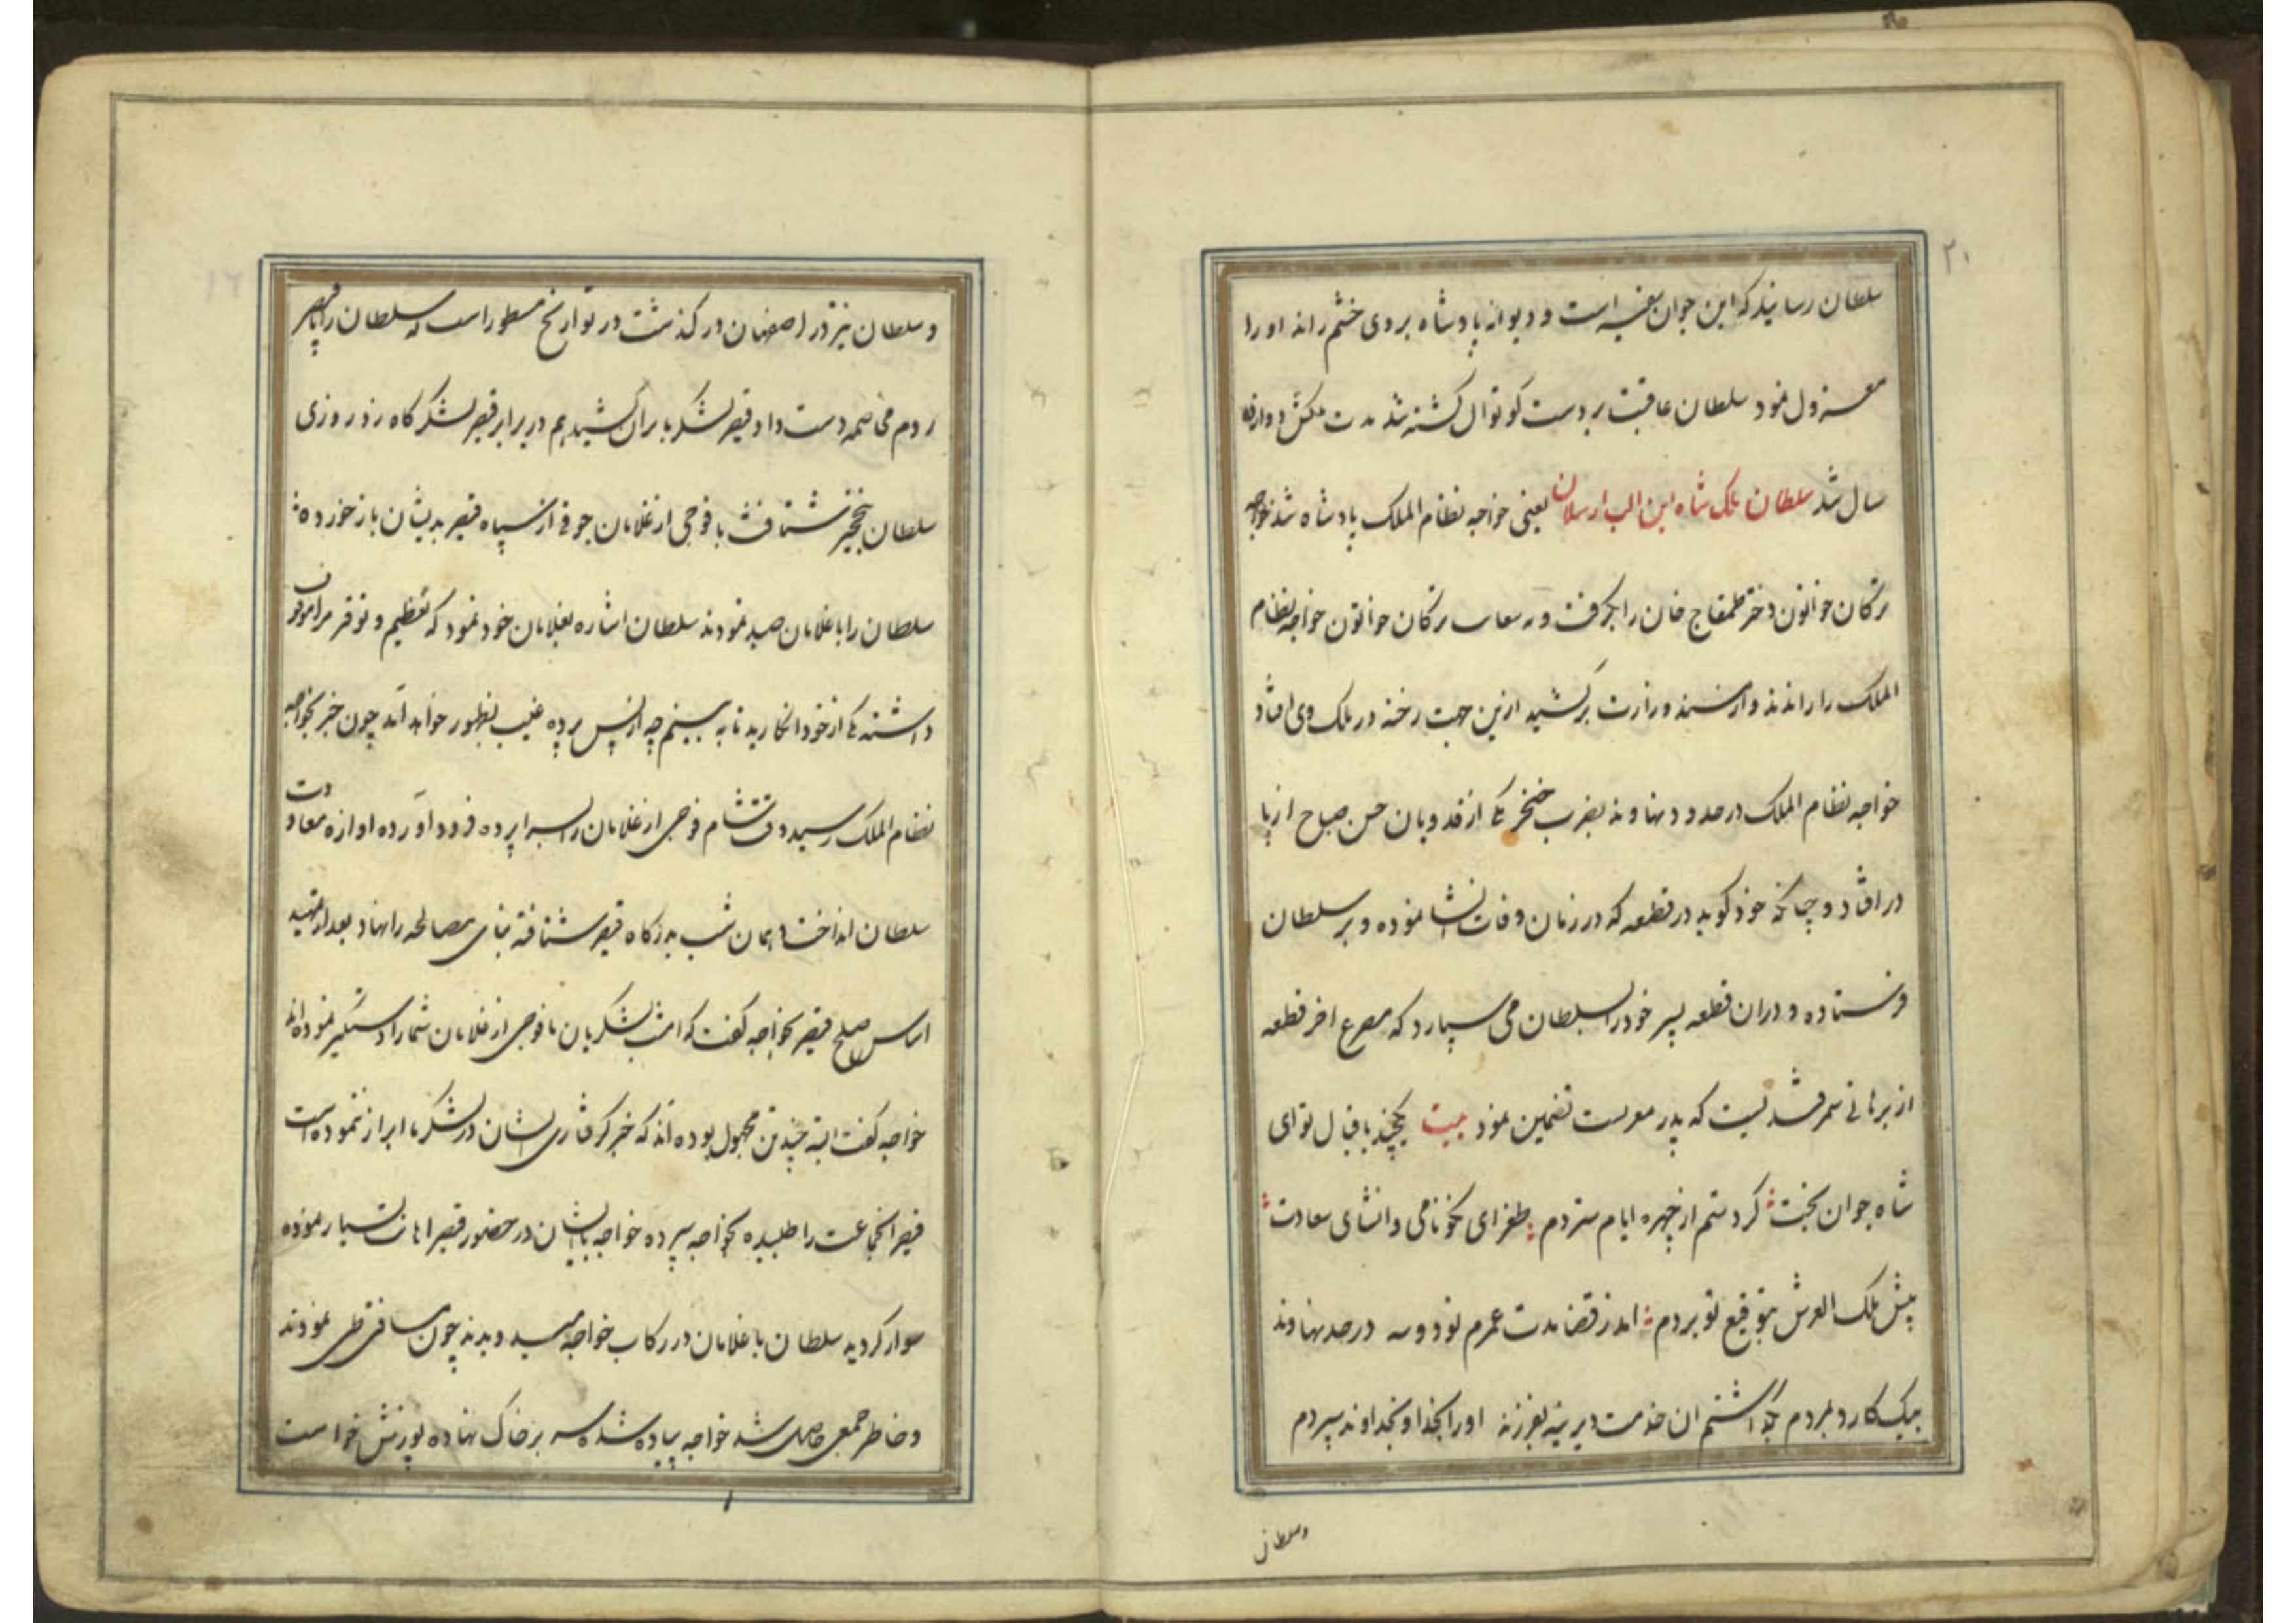 ۲۰
سلطان رسانید که این جوان سفیه است و دیوانه پادشاه بر وی خشم راند او را
معزول نمود سلطان عاقبت بر دست کوتوال کشته شد مدت ملکش دوازده
سال شد سلطان ملک شاه ابن الب ارسلان بعینی خواجه نظام الملک پادشاه شد خواجه
ترکان خواتون دختر طمغاج خان را بگرفت و ترکان خواتون خواجه نظام
الملک را راندند و از مسند وزارت برکشید ازین جهت رخنه در ملک وی افتاد
خواجه نظام الملک در حدود نهاوند بضرب خنجر یکی از فدویان حسن صباح از پا
در افتاد و چنانکه خود کوید در قطعه که در زمان وفات انشا نموده و بر سلطان
فرستاده و دران قطعه پسر خود را بسلطان می سپارد که مصرع اخر قطعه
از برهانی سمرقندیست که پدر معزیست تضمین نمود بیت یکچند باقبال تو ای
شاه جوان بخت کرد ستم از چهره ایام ستردم طغرای نکونامی و انشای سعادت
پیش ملک العرش بتوقیع تو بردم امد ز قضا مدت عمرم نود و سه در حد نهاوند
بیک کارد بمردم بگذاشتم ان خدمت دیرینه بفرزند او را بخدا و بخداوند سپردم
وسلطان
و سلطان نیز در اصفهان در کذشت در تواریخ مسطور است که سلطان را با قیصر
روم مخاصمه دست داد و قیصر لشکر بایران کشید هم در برابر قیصر لشکرگاه زد روزی
سلطان بنخجیر شتافت با فوجی از غلامان جوقی از سپاه قیصر بدیشان باز خورده
سلطان را با غلامان صید نمودند سلطان اشاره بغلامان خود نمود که تعظیم و توقیر مرا موقوف
داشته یکی از خود انکارید تا به بینم چه از پس پرده غیب بظهور خواهد آمد چون خبر بخواجه
نظام الملک رسید وقت شام فوجی از غلامان را بسراپرده فرود آورده اوازه معاودت
سلطان انداخت و همان شب بدرگاه قیصر شتافته بنای مصالحه را نهاد بعد از تمهید
اساس صلح قیصر بخواجه کفت که امشب لشکریان ما فوجی از غلامان شما را دستگیر نموده اند
خواجه کفت البته چند تن مجهول بوده اند که خبر کرفتاری ایشان در لشکر ما ابراز ننموده است
قیصر انجماعت را طلبیده بخواجه سپرده خواجه بایشان در حضور قیصر اهانت بسیار نموده
سوار کردید سلطان با غلامان در رکاب خواجه میدویدند چون مسافتی طی نمودند
و خاطر جمعی حاصل شد خواجه پیاده شده سر بر خاک نهاده پوزش خواست